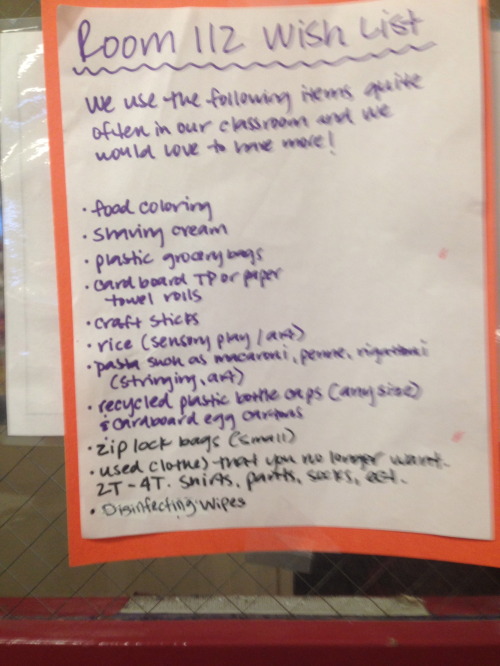 Room 112 Wish List
We use the following items quite
often in our classroom and we
would love to have more!
· food coloring
· shaving cream
· plastic grocery bags
· cardboard TP or paper
towel rolls
· craft sticks
· rice (sensory play / art)
· pasta such as macaroni, penne, rigattoni
(stringing, art)
· recycled plastic bottle caps (any size)
& cardboard egg cartons
· zip lock bags (small)
· used clothes that you no longer want.
2T-4T. shirts, pants, socks, ect.
· Disinfecting Wipes